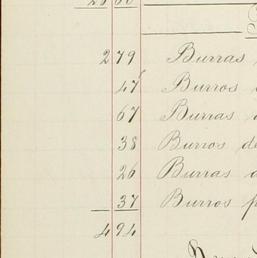 279 Burras
47 Burros
67 Burras
38 Burros de
26 Burras
37 Burros
494